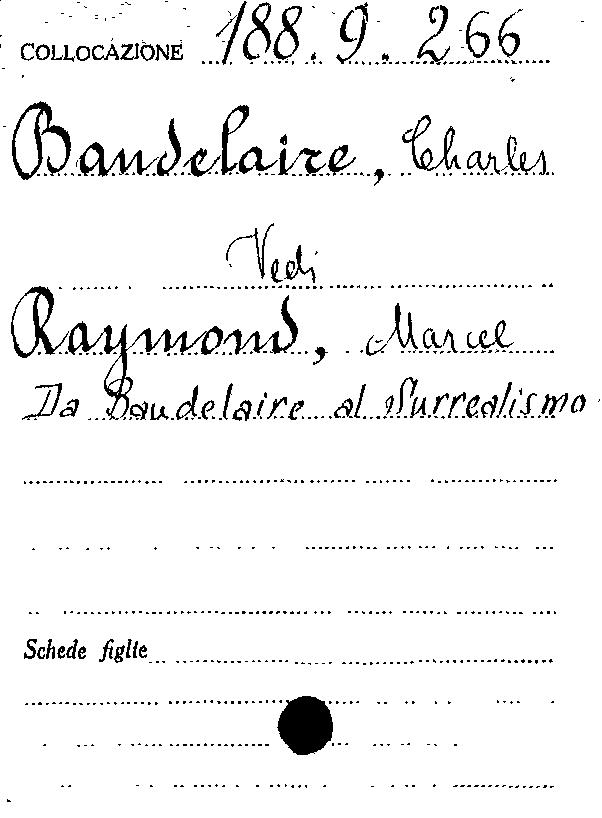 COLLOCAZIONE 188.9.266
Baudelaire, Charles
Vedi
Raymond, Marcel
Da Baudelaire al Surrealismo
Schede figlie